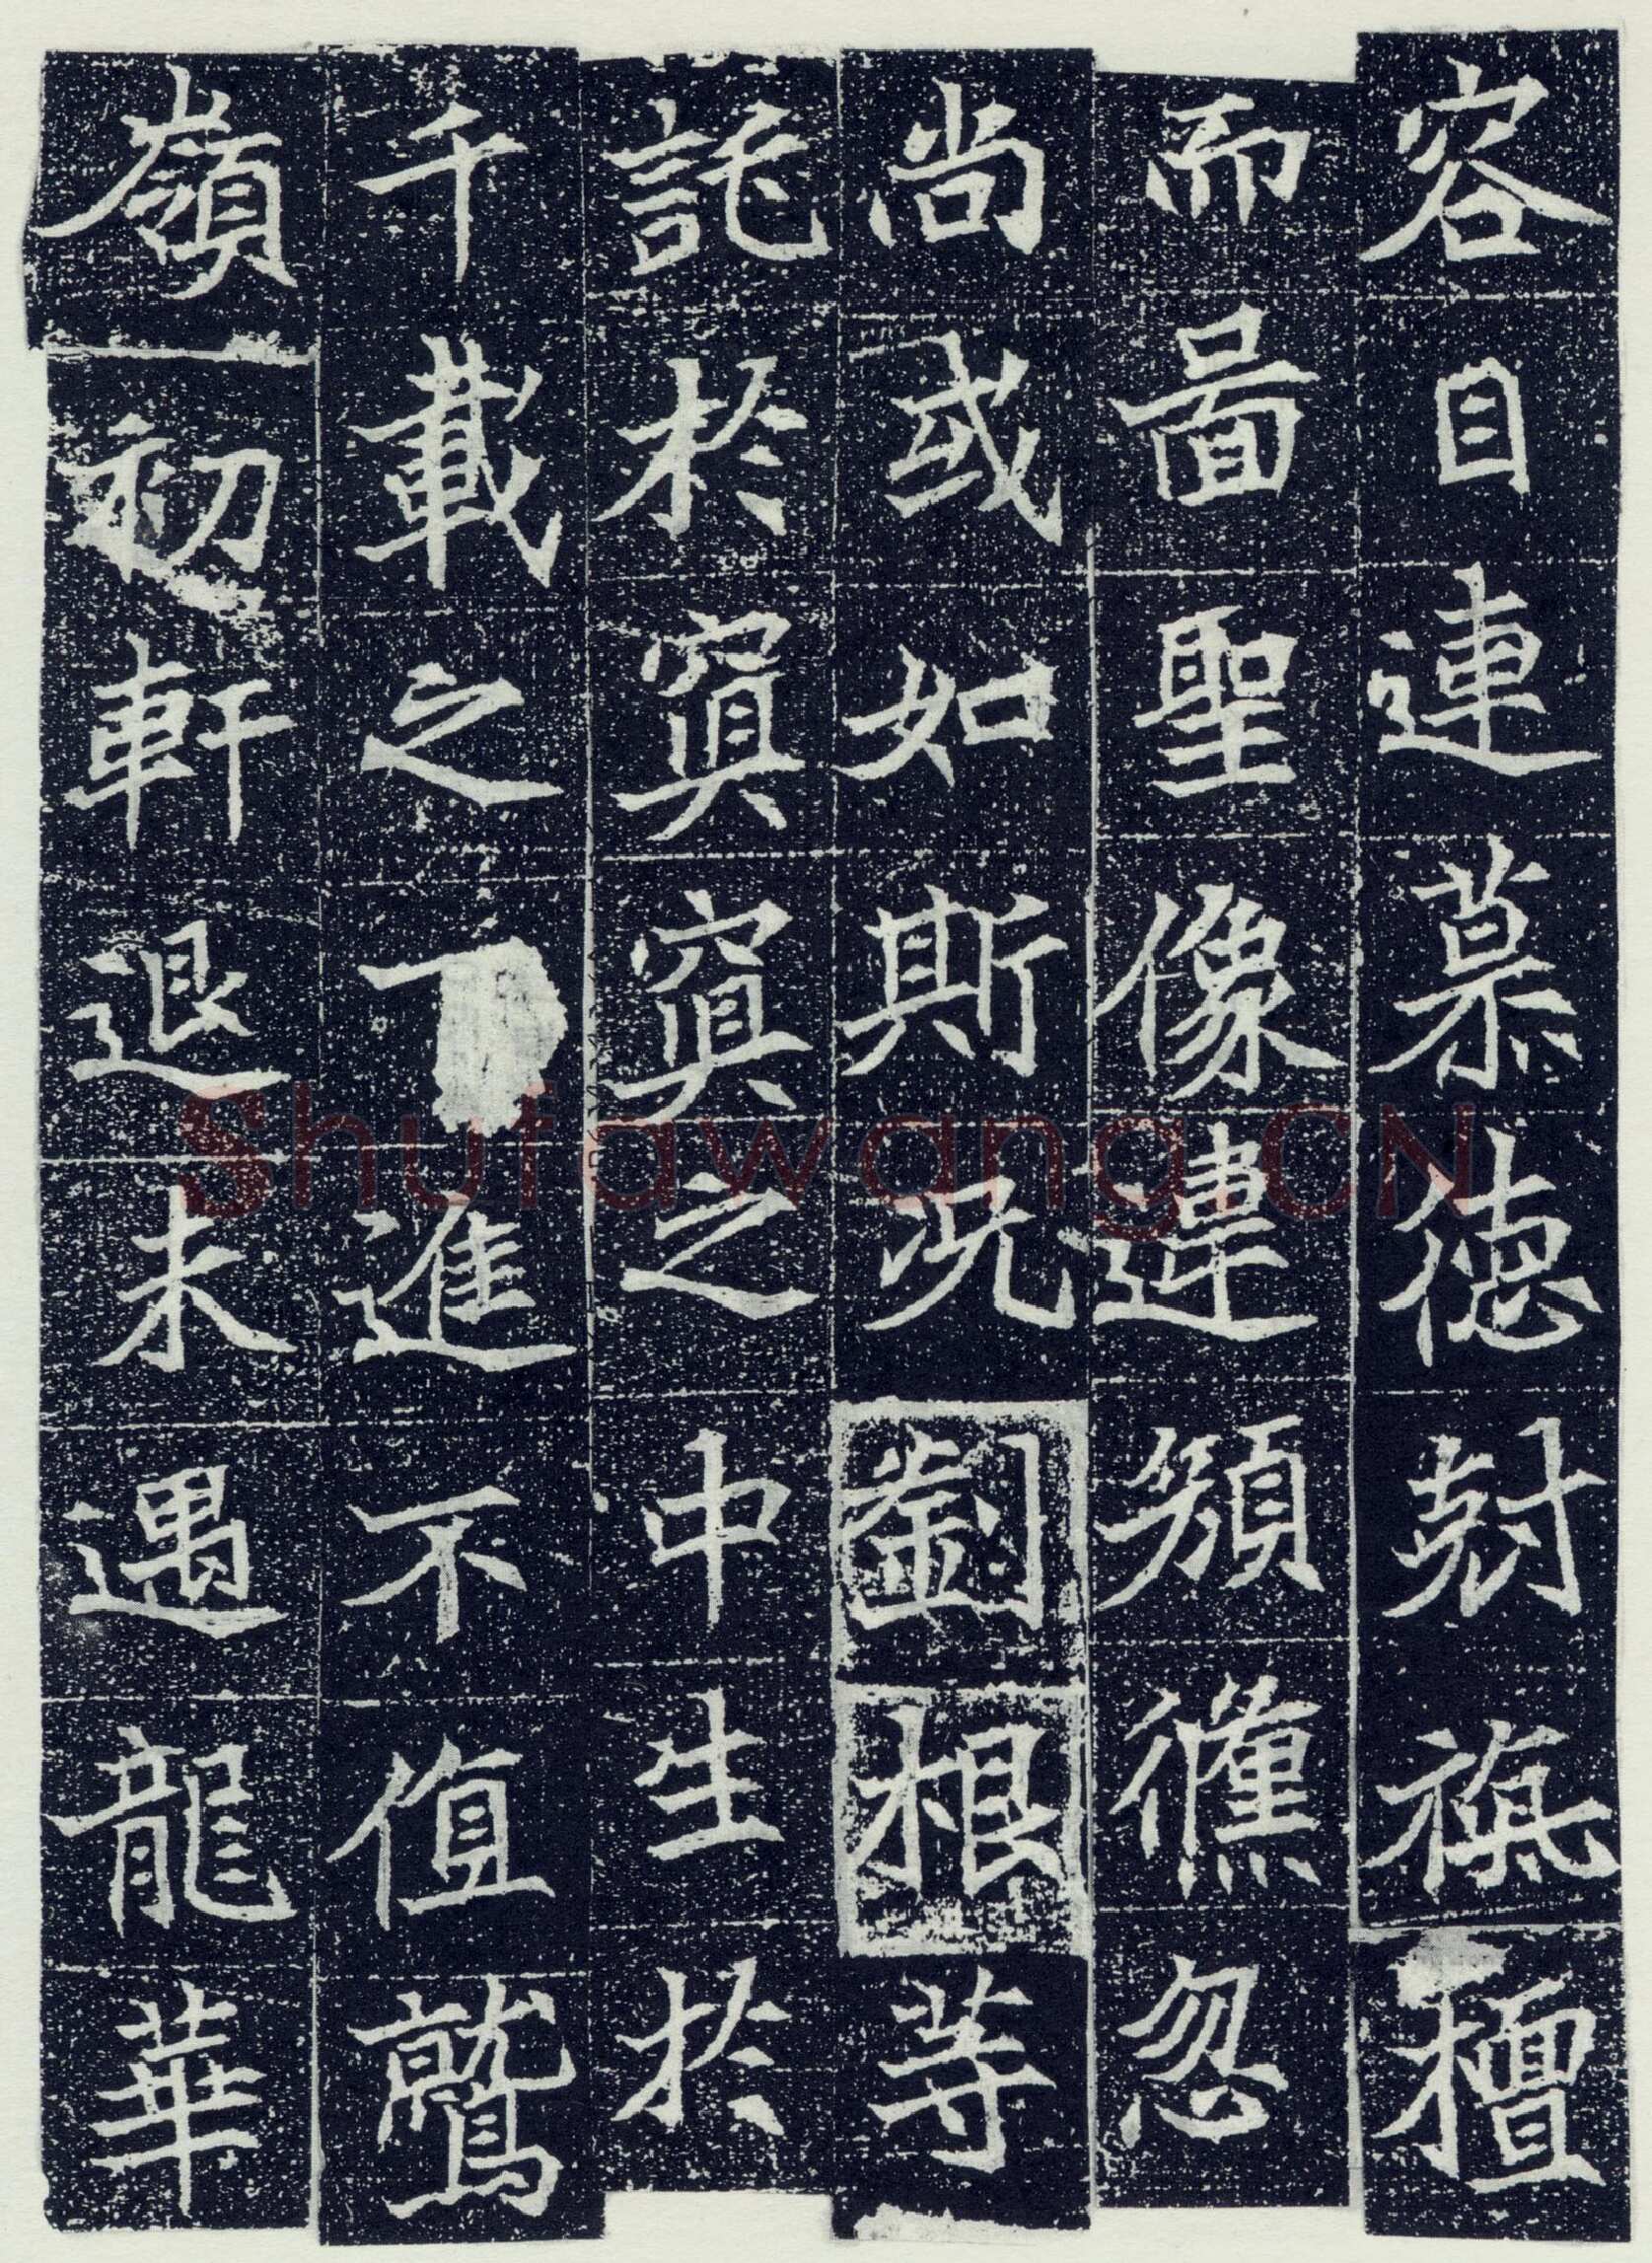 容目連慕德刻旃檀
而啚聖像違頽儵忽
尚或如斯况劉根等
託於寘寘之中生於
千載之下進不值鷲
嶺初軒退未遇龍華
Shufawang.CN